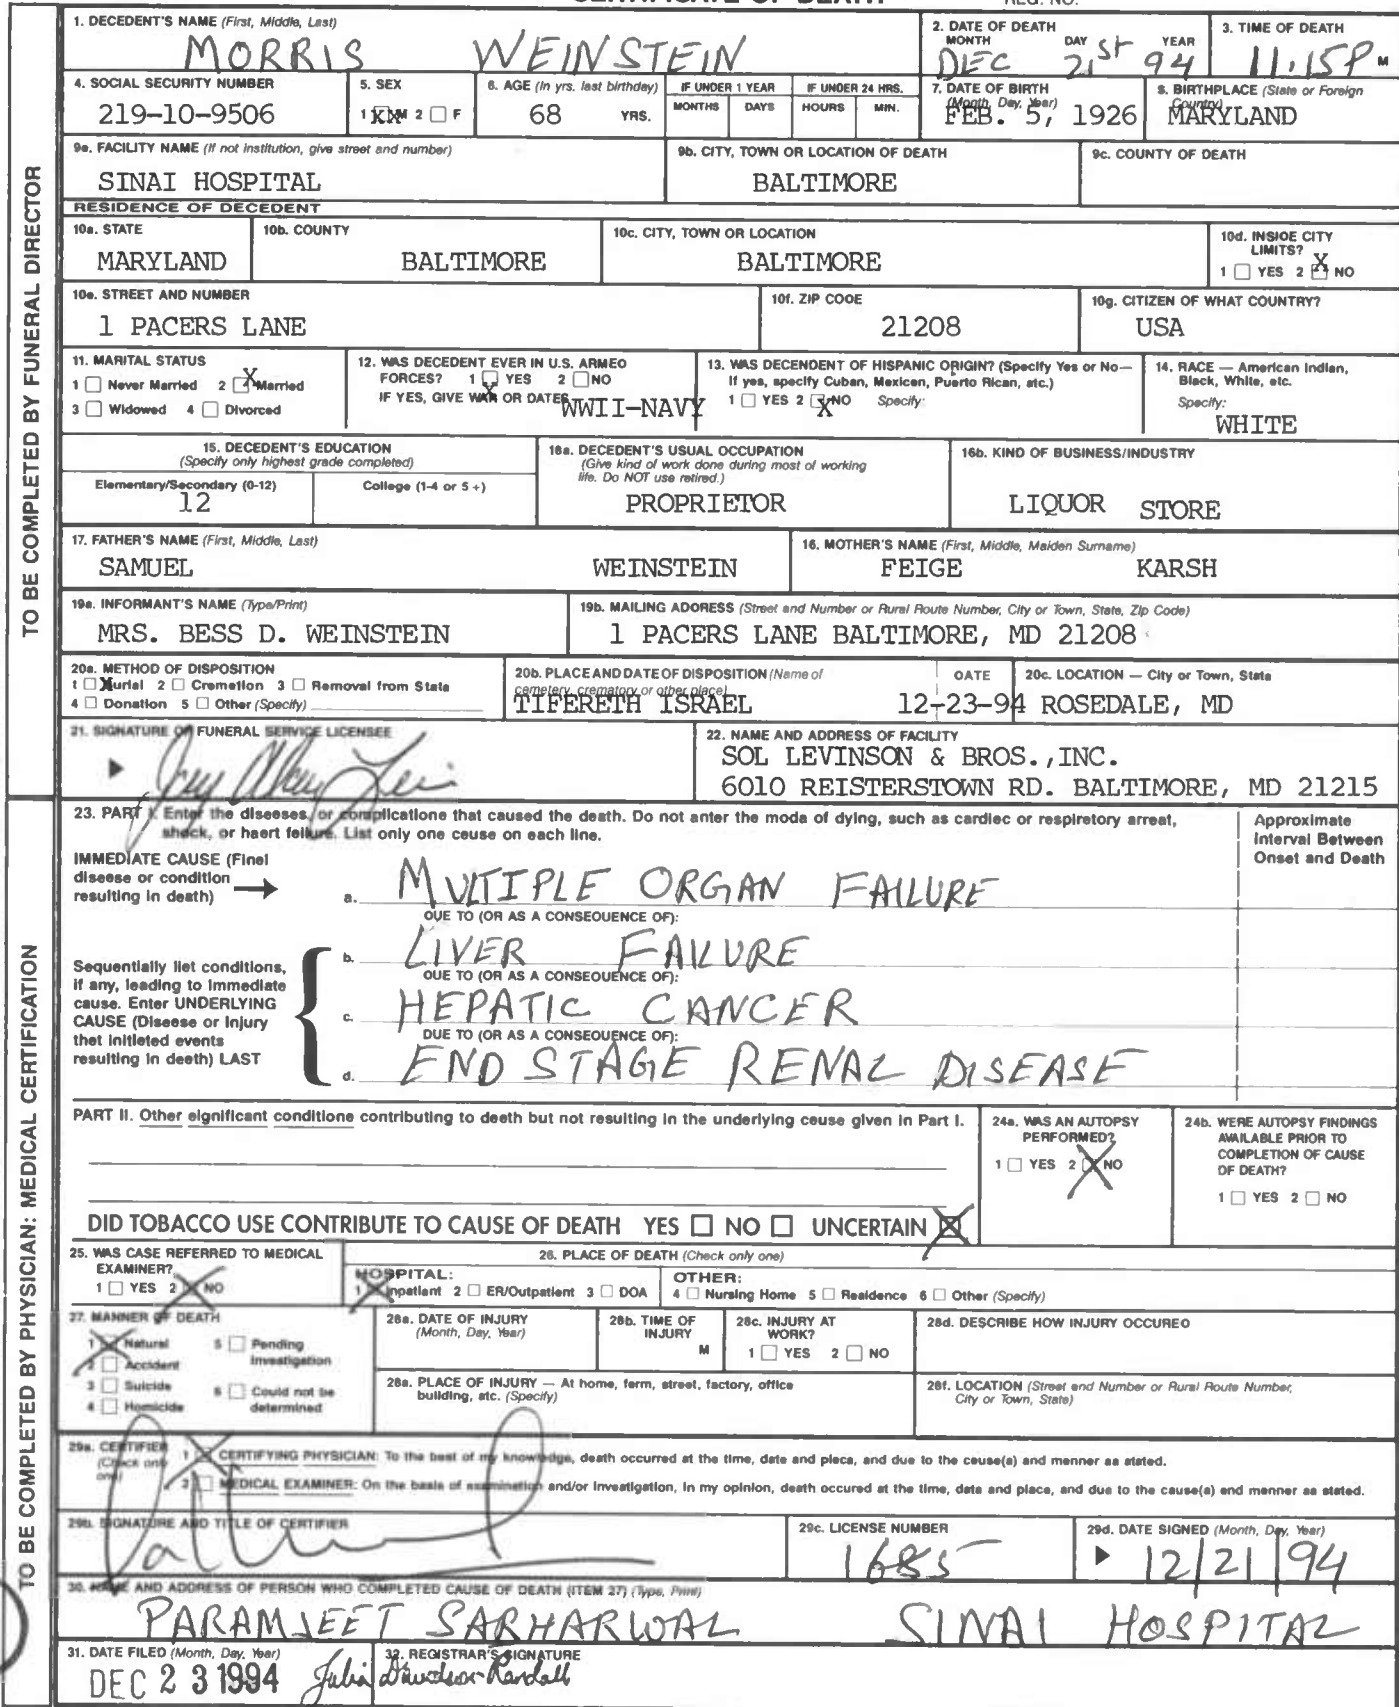 1. DECEDENT'S NAME (First, Middle, Last)
MORRIS WEINSTEIN
2. DATE OF DEATH
MONTH DAY YEAR
DEC 21st 94
3. TIME OF DEATH
11:15P M
4. SOCIAL SECURITY NUMBER
219-10-9506
5. SEX
1 M 2 F
6. AGE (In yrs. last birthday)
68 YRS.
IF UNDER 1 YEAR
MONTHS DAYS
IF UNDER 24 HRS.
HOURS MIN.
7. DATE OF BIRTH
(Month, Day, Year)
FEB. 5, 1926
8. BIRTHPLACE (State or Foreign
Country)
MARYLAND
9a. FACILITY NAME (If not institution, give street and number)
SINAI HOSPITAL
9b. CITY, TOWN OR LOCATION OF DEATH
BALTIMORE
9c. COUNTY OF DEATH
RESIDENCE OF DECEDENT
10a. STATE
MARYLAND
10b. COUNTY
BALTIMORE
10c. CITY, TOWN OR LOCATION
BALTIMORE
10d. INSIDE CITY
LIMITS?
1 YES 2 X NO
10e. STREET AND NUMBER
1 PACERS LANE
10f. ZIP CODE
21208
10g. CITIZEN OF WHAT COUNTRY?
USA
11. MARITAL STATUS
1 Never Married 2 X Married
3 Widowed 4 Divorced
12. WAS DECEDENT EVER IN U.S. ARMED
FORCES? 1 X YES 2 NO
IF YES, GIVE WAR OR DATES
WWII-NAVY
13. WAS DECENDENT OF HISPANIC ORIGIN? (Specify Yes or No—
If yes, specify Cuban, Mexican, Puerto Rican, etc.)
1 YES 2 X NO Specify:
14. RACE — American Indian,
Black, White, etc.
Specify:
WHITE
15. DECEDENT'S EDUCATION
(Specify only highest grade completed)
Elementary/Secondary (0-12)
12
College (1-4 or 5+)
16a. DECEDENT'S USUAL OCCUPATION
(Give kind of work done during most of working
life. Do NOT use retired.)
PROPRIETOR
16b. KIND OF BUSINESS/INDUSTRY
LIQUOR STORE
17. FATHER'S NAME (First, Middle, Last)
SAMUEL WEINSTEIN
16. MOTHER'S NAME (First, Middle, Maiden Surname)
FEIGE KARSH
19a. INFORMANT'S NAME (Type/Print)
MRS. BESS D. WEINSTEIN
19b. MAILING ADDRESS (Street and Number or Rural Route Number, City or Town, State, Zip Code)
1 PACERS LANE BALTIMORE, MD 21208
20a. METHOD OF DISPOSITION
1 X Burial 2 Cremation 3 Removal from State
4 Donation 5 Other (Specify)
20b. PLACE AND DATE OF DISPOSITION (Name of
cemetery, crematory or other place)
TIFERETH ISRAEL
DATE
12-23-94
20c. LOCATION — City or Town, State
ROSEDALE, MD
21. SIGNATURE OF FUNERAL SERVICE LICENSEE
22. NAME AND ADDRESS OF FACILITY
SOL LEVINSON & BROS.,INC.
6010 REISTERSTOWN RD. BALTIMORE, MD 21215
TO BE COMPLETED BY FUNERAL DIRECTOR
23. PART I. Enter the diseases, or complications that caused the death. Do not enter the mode of dying, such as cardiac or respiratory arrest,
shock, or heart failure. List only one cause on each line.
Approximate
Interval Between
Onset and Death
IMMEDIATE CAUSE (Final
disease or condition
resulting in death)
a. MULTIPLE ORGAN FAILURE
DUE TO (OR AS A CONSEQUENCE OF):
b. LIVER FAILURE
DUE TO (OR AS A CONSEQUENCE OF):
Sequentially list conditions,
if any, leading to immediate
cause. Enter UNDERLYING
CAUSE (Disease or Injury
that initiated events
resulting in death) LAST
c. HEPATIC CANCER
DUE TO (OR AS A CONSEQUENCE OF):
d. END STAGE RENAL DISEASE
PART II. Other significant conditions contributing to death but not resulting in the underlying cause given in Part I.
24a. WAS AN AUTOPSY
PERFORMED?
1 YES 2 X NO
24b. WERE AUTOPSY FINDINGS
AVAILABLE PRIOR TO
COMPLETION OF CAUSE
OF DEATH?
1 YES 2 NO
DID TOBACCO USE CONTRIBUTE TO CAUSE OF DEATH YES NO UNCERTAIN X
25. WAS CASE REFERRED TO MEDICAL
EXAMINER?
1 YES 2 X NO
26. PLACE OF DEATH (Check only one)
HOSPITAL:
1 X Inpatient 2 ER/Outpatient 3 DOA
OTHER:
4 Nursing Home 5 Residence 6 Other (Specify)
27. MANNER OF DEATH
1 X Natural 5 Pending
Investigation
2 Accident
3 Suicide 6 Could not be
determined
4 Homicide
28a. DATE OF INJURY
(Month, Day, Year)
28b. TIME OF
INJURY
M
28c. INJURY AT
WORK?
1 YES 2 NO
28d. DESCRIBE HOW INJURY OCCURED
28a. PLACE OF INJURY — At home, farm, street, factory, office
building, etc. (Specify)
28f. LOCATION (Street and Number or Rural Route Number,
City or Town, State)
29a. CERTIFIER
(Check only
one)
1 X CERTIFYING PHYSICIAN: To the best of my knowledge, death occurred at the time, date and place, and due to the cause(s) and manner as stated.
2 MEDICAL EXAMINER: On the basis of examination and/or investigation, in my opinion, death occured at the time, date and place, and due to the cause(s) and manner as stated.
29b. SIGNATURE AND TITLE OF CERTIFIER
29c. LICENSE NUMBER
1685
29d. DATE SIGNED (Month, Day, Year)
12/21/94
30. NAME AND ADDRESS OF PERSON WHO COMPLETED CAUSE OF DEATH (ITEM 27) (Type, Print)
PARAMJEET SARHARWAL SINAI HOSPITAL
31. DATE FILED (Month, Day, Year)
DEC 23 1994
32. REGISTRAR'S SIGNATURE
Julia Davidson-Randall
TO BE COMPLETED BY PHYSICIAN: MEDICAL CERTIFICATION